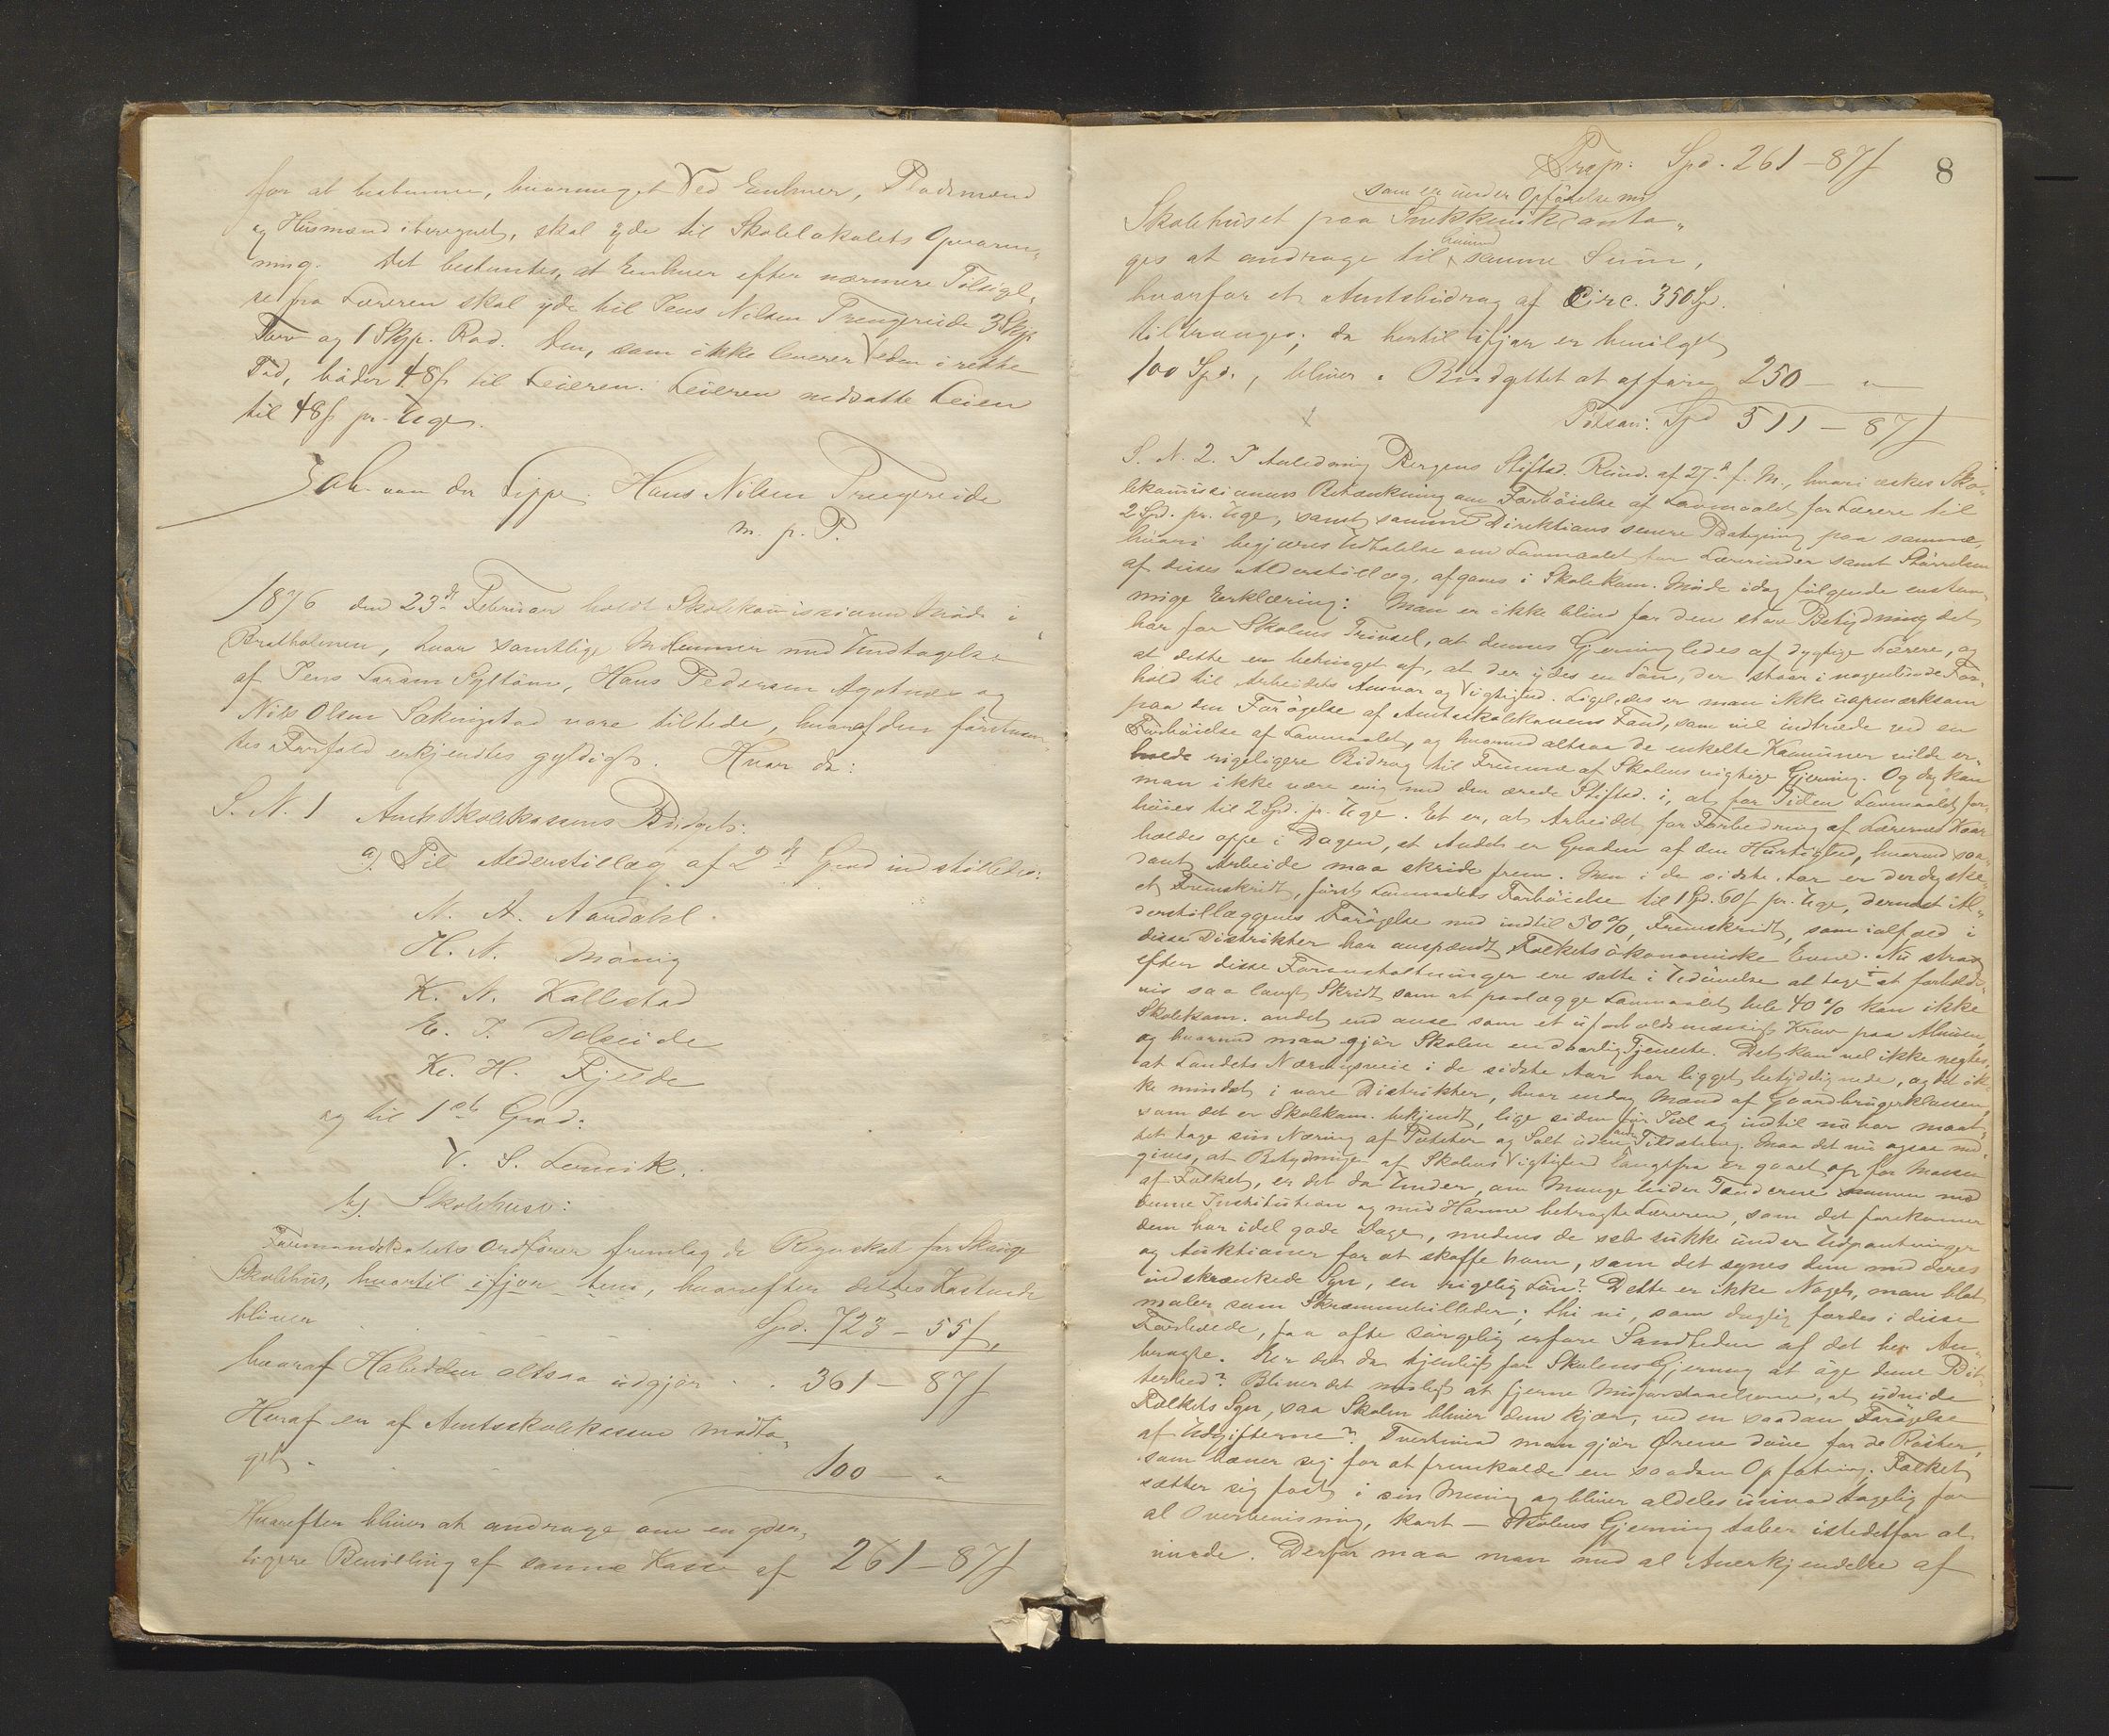 for at bestemme, hvormeget Ved Enhver, Pladsmænd
og Husmænd iberegnet, skal yde til Skolelokalets Opvarm-
ning. Det bestemtes, at Enhver efter nærmere Tilsigel-
se fra Læreren skal yde til Jens Nilsen Trengereide 3 Skjp
Torv og 1 Skjp. Rod. Den, som ikke leverer Veden i rette
Tid, böder 48 ß til Leieren. Leieren nedsatte Leien
til 48 ß pr. Uge.
Jak. von der Lippe. Hans Nilsen Trengereide
m. p. P.
1876 den 23de Februar holdt Skolekommissionen Möde i
Bratholmen, hvor samtlige Medlemmer med Undtagelse
af Jens Larsen Syltöen, Hans Pedersen Agotnæs og
Nils Olsen Sækingstad vare tilstede, hvoraf den förstnævn-
tes Forfald erkjendtes gyldigt. Hvor da:
S. N. 1 Amtsskolekassens Budget:
a) Til Alderstillæg af 2den Grad indstilledes:
N. A. Nordahl.
H. N. Mönig
K. N. Kallestad
E. J. Dalseide
K. H. Fjelde
og til 1ste Grad:
V. S. Lervik.
b) Skolehuse:
Formandskabets Ordförer fremlagde Regnskab for Skauge
Skolehus, hvortil ifjor _, hvorefter dettes Kostende
bliver . . . Spd. 723 - 55 ß.
hvoraf Halvdelen altsaa udgjör . . 361 - 87 ß
Heraf er af Amtsskolekassen modta-
get . . . 100 - "
Hvorefter bliver at andrage om en yder-
ligere Bevilling af samme Kasse af 261 - 87 ß
8
Trsp: Spd. 261 - 87 ß
som er under Opförelse m.
Skolehuset paa Snekkevik anta-
ges at andrage til samme Sum,
hvorfor et Amtsbidrag af Circ. 350 Spd.
tiltrænges; da hertil ifjor er bevilget
100 Spd., bliver paa Budgettet at opföre 250 - "
Tilsam: Spd 511 - 87 ß
S. N. 2. I Anledning Bergens Stiftsd. Rund. af 27de f. M., hvori æskes Sko-
lekommissionens Betænkning om Forhöielse af Lavmaalet for Lærere til
2 Spd. pr. Uge, samt samme Direktions senere Paategning paa samme,
hvori begjæres Udtalelse om Lavmaalet for Lærerinder samt Störrelsen
af disses Alderstillæg, afgaves i Skolekom. Möde idag fölgende enstem-
mige Erklæring: Man er ikke blind for den store Betydning det
har for Skolens Trivsel, at dennes Gjerning ledes af dygtige Lærere, og
at dette er betinget af, at der ydes en Lön, der staar i nogenlunde For-
hold til Arbeidets Ansvar og Vigtighed. Ligeledes er man ikke uopmærksom
paa den Forögelse af Amtsskolekassens Fond, som vil indtræde ved en
Forhöielse af Lavmaalet, og hvorved altsaa de enkelte Kommuner vilde er-
holde rigeligere Bidrag til Fremme af Skolens vigtige Gjerning. Og dog kan
man ikke være enig med den ærede Stiftsd. i, at for Tiden Lavmaalet for-
höies til 2 Spd. pr. Uge. Et er, at Arbeidet for Forbedring af Lærernes Kaar
holdes oppe i Dagen, et Andet er Graden af den Hurtighed, hvormed saa-
dant Arbeide maa skride frem. Men i de sidste Aar er der dog ske-
et Fremskridt, först Lavmaalets Forhöielse til 1 Spd. 60 ß pr. Uge, dernæst Al-
derstillæggenes Forögelse med indtil 50 %, Fremskridt, som ialfald i
disse Distrikter har anspændt Folkets ökonomiske Evne. Nu strax
efter disse Foranstaltninger ere satte i Udövelse at tage et forholds-
vis saa langt Skridt som at paalægge Lavmaalet hele 40 % kan ikke
Skolekom. andet end anse som et uforholdsmæssigt Krav paa Almuen,
og hvorved man gjör Skolen en daarlig Tjeneste. Det kan vel ikke negtes,
at Landets Næringsveie i de sidste Aar har ligget betydelig nede, og det ik-
ke mindst i vore Distrikter, hvor endog Mænd af Gaardbrugerklassen,
som det er Skolekom. bekjendt, lige siden för Jul og indtil nu har maat-
tet tage sin Næring af Poteter og Salt uden Tilsætning. Maa det nu ogsaa med-
gives, at Betydningen af Skolens Vigtighed langtfra er gaaet op for Massen
af Folket, er det da Under, om Mange bider Tænderne sammen mod
denne Institution og med Harme betragte Læreren, som det forekommer
dem har idel gode Dage, medens de selv sukke under Udpantninger
og Auktioner for at skaffe ham, som det synes dem med deres
indskrænkede Syn, en rigelig Lön? Dette er ikke Noget, man blot
maler som Skræmmebilleder; thi vi, som daglig færdes i disse
Forholde, faa ofte sörgelig erfare Sandheden af det her An-
bragte. Er det da tjenligt for Skolens Gjerning at öge denne Bit-
terhed? Bliver det muligt at fjerne Misforstaaelserne, at udvide
Folkets Syn, saa Skolen bliver dem kjær, ved en saadan Forögelse
af Udgifterne? Tvertimod man gjör Örene döve for de Röster,
som hæver sig for at fremkalde en saadan Opfatning. Folket
sætter sig fast i sin Mening og bliver aldeles uimodtagelig for
al Overbevisning, kort – Skolens Gjerning taber istedetfor at
vinde. Derfor maa man med al Anerkjendelse af